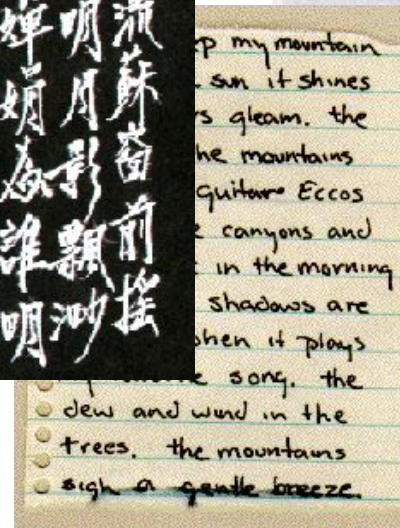 流蘇窗前搖
明月影飄渺
嬋娟為誰明
my mountain
sun it shines
gleam. the
mountains
guitar Eccos
canyons and
in the morning
shadows are
it plays
song. the
dew and wind in the
trees. the mountains
sigh a gentle breeze.